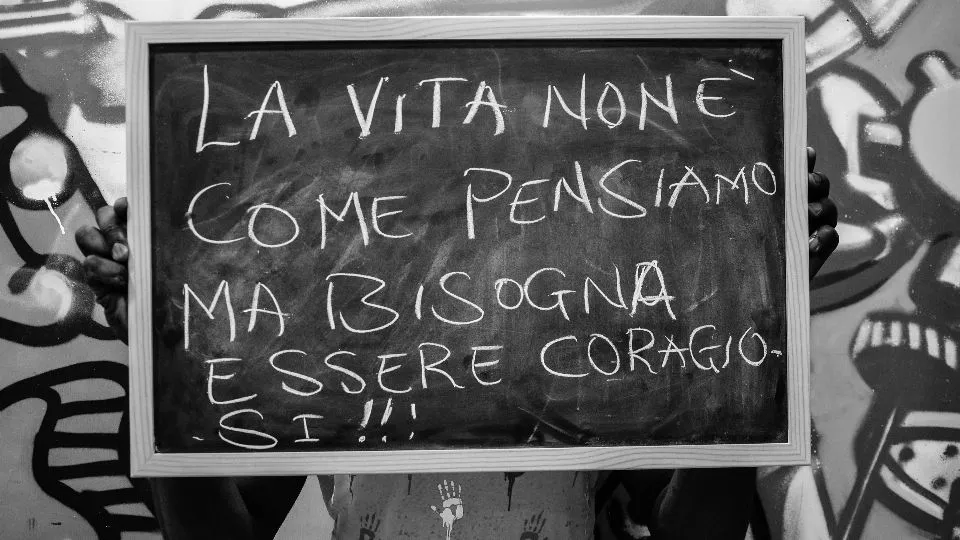 LA VITA NON È
COME PENSIAMO
MA BISOGNA
ESSERE CORAGIO-
-SI !!!